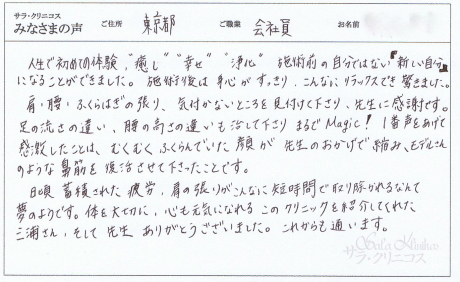 サラ・クリニコス
みなさまの声 ご住所 東京都 ご職業 会社員 お名前
人生で初めての体験、"癒し" "幸せ" "浄化" 施術前の自分ではない『新しい自分』
になることができました。施術後は身心がすっきり、こんなにリラックスでき驚きました。
肩・腰・ふくらはぎの張り、気付かないところを見付けて下さり、先生に感謝です。
足の流さの違い、腰の高さの違いも治して下さり まるでMagic! 1番声をあげて
感激したことは、むくむくふくらんでいた顔が 先生のおかげで縮み、モデルさん
のような鼻筋を復活させて下さったことです。
日頃 蓄積された疲労、肩の張りがこんなに短時間で取り除かれるなんて
夢のようです。体を大切に、心も元気になれるこのクリニックを紹介してくれた
三浦さん、そして先生 ありがとうございました。これからも通います。
サラ・クリニコス